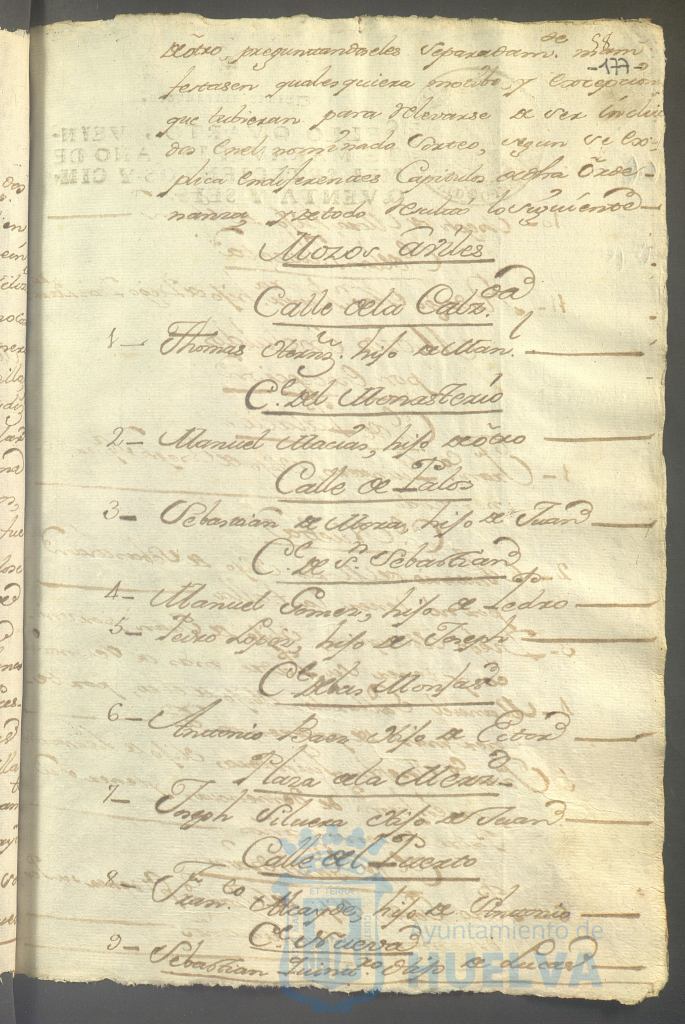 58
-177-
de otro, preguntandoseles separadam.te manifestasen
festasen qualesquiera motibo, y excepcion
que tubieran para relevarse de ser inclui
dos en el nominado Sorteo, segun se ex-
plica en diferentes Capitulos de dha Orde-
nanza, y de todo resultó lo siguiente
Mozos útiles
Calle de la Calz.da
1- Thomas Hern.z hijo de Man.
C.e del Monasterio
2- Manuel Macias, hijo de otro
Calle de Palos
3- Sebastian de Mora, hijo de Juan
C.e de S.n Sebastian
4- Manuel Gomez, hijo de Pedro
5- Pedro Lopez, hijo de Joseph
C.e de las Monjas
6- Antonio Baez hijo de
Plaza de la Merz.d
7- Joseph Silvera hijo de Juan
Calle del Puerto
8- Fran.co Alcayde, hijo de Antonio
C.e Nueva
9- Sebastian hijo de Lucas
Ayuntamiento de
HUELVA